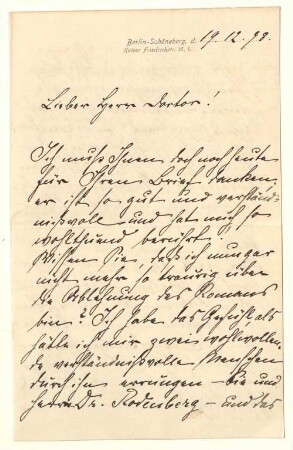 Berlin-Schöneberg, d. 19.12.98.
Kaiser Friedrichstr.
Lieber Herr Doctor!
Ich muß Ihnen doch noch heute
für Ihren Brief danken,
er ist so gut und verständ-
nißvoll und hat mich so
wohlthuend berührt.
Wissen Sie, daß ich nun gar
nicht mehr so traurig über
die Ablehnung des Romans
bin? Ich habe das Gefühl als
hätte ich mir zwei wohlwollen-
de verständnißvolle Menschen
durch ihn errungen – Sie und
Herrn Dr. Rodenberg – und das